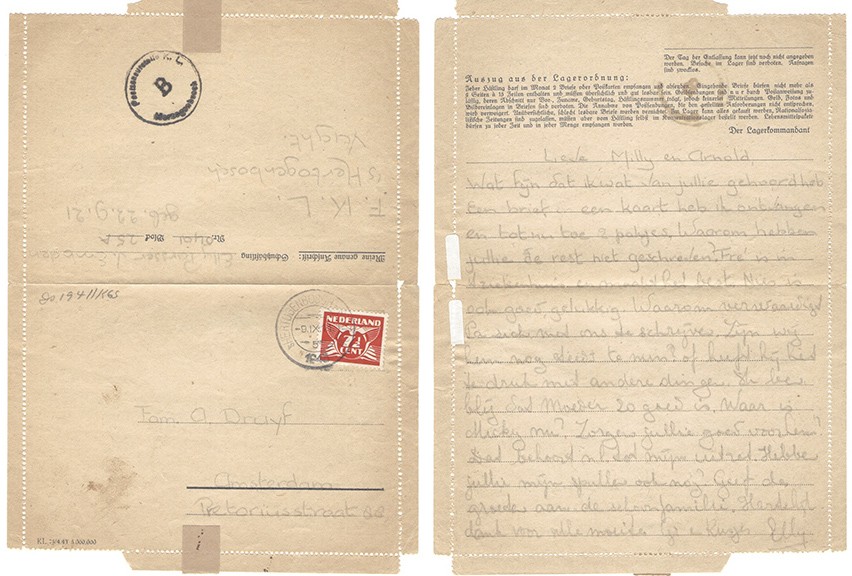 Postzensurstelle K. L.
B
Herzogenbusch
Vught.
's Hertogenbosch
F. K. L.
geb. 22.9.'21
Nr. Block 25A
Meine genaue Anschrift: Schutzhäftling Elly
NEDERLAND
7½
CENT
Fam. A. Druyf
Amsterdam
Pretoriusstraat
KL 4.43 5.000.000
Der Tag der Entlassung kann jetzt noch nicht angegeben
werden. Besuche im Lager sind verboten. Anfragen
sind zwecklos.
Auszug aus der Lagerordnung:
Jeder Häftling darf im Monat 2 Briefe oder Postkarten empfangen und absenden. Eingehende Briefe dürfen nicht mehr als
4 Seiten à 15 Zeilen enthalten und müssen übersichtlich und gut lesbar sein. Geldsendungen sind nur durch Postanweisung zu-
lässig, deren Abschnitt nur Vor-, Zuname, Geburtstag, Häftlingsnummer trägt, jedoch keinerlei Mitteilungen. Geld, Fotos und
Bildereinlagen in Briefen sind verboten. Die Annahme von Postsendungen, die den gestellten Anforderungen nicht entsprechen,
wird verweigert. Unübersichtliche, schlecht lesbare Briefe werden vernichtet. Im Lager kann alles gekauft werden. Nationalsozia-
listische Zeitungen sind zugelassen, müssen aber vom Häftling selbst im Konzentrationslager bestellt werden. Lebensmittelpakete
dürfen zu jeder Zeit und in jeder Menge empfangen werden.
Der Lagerkommandant
Lieve Milly en Arnold,
Wat fijn dat ik wat van jullie gehoord heb
Een brief en een kaart heb ik ontvangen
en tot nu toe 2 pakjes. Waarom hebben
jullie de rest niet geschreven? Fré is in
best. Mies is
ook goed, gelukkig. Waarom verwaardigd
Pa zich niet ons te schrijven. Zijn wij
hem nog steeds te min? of heeft hij het
te druk met andere dingen. Ik ben
blij dat Moeder zo goed is. Waar is
Micky nu? Zorgen jullie goed voor hem?
Dat behoord nl. tot mijn uitzet. Hebben
jullie mijn spullen ook nog? Geef de
groeten aan de schoonfamilie. Hartelijk
dank voor alle moeite. Elly